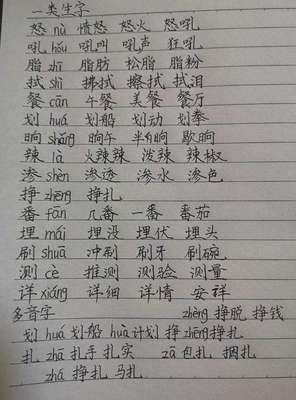 一类生字
怒 nù 愤怒 怒火 怒吼
吼 hǒu 吼叫 吼声 狂吼
脂 zhī 脂肪 松脂 脂粉
拭 shì 拂拭 擦拭 拭泪
餐 cān 午餐 美餐 餐厅
划 huá 划船 划动 划拳
晌 shǎng 晌午 半晌 歇晌
辣 là 火辣辣 泼辣 辣椒
渗 shèn 渗透 渗水 渗色
挣 zhēng 挣扎
番 fān 几番 一番 番茄
埋 mái 埋没 埋伏 埋头
刷 shuā 冲刷 刷牙 刷碗
测 cè 推测 测验 测量
详 xiáng 详细 详情 安祥
多音字 zhèng 挣脱 挣钱
划 huá 划船 huà 计划 挣 zhēng 挣扎
扎 zhā 扎手 扎实 zā 包扎 捆扎
zhá 挣扎 马扎